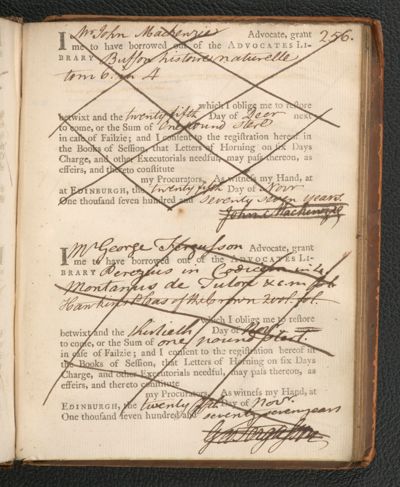 256.
I Mr John Mackenzie Advocate, grant
me to have borrowed out of the ADVOCATES LI-
BRARY Buffon histoire naturelle
tom 6. in 4
which I oblige me to restore
betwixt and the twenty fifth Day of Decr next
to come, or the Sum of One pound Sterl
in case of Failzie; and I consent to the registration hereof in
the Books of Session, that Letters of Horning on six Days
Charge, and other Executorials needful, may pass thereon, as
effeirs, and thereto constitute
my Procurators. As witness my Hand, at
at EDINBURGH, the twenty fifth Day of Novr
One thousand seven hundred and seventy seven years.
John Mackenzie
I Mr George Fergusson Advocate, grant
me to have borrowed out of the ADVOCATES LI-
BRARY Perezius in Codicem in 4
Montanus de Tutor &c in fol.
Hawkins Pleas of the Crown 2 vol. fol.
which I oblige me to restore
betwixt and the thirtieth Day of
to come, or the Sum of one pound Sterl.
in case of Failzie; and I consent to the registration hereof in
the Books of Session, that Letters of Horning on six Days
Charge, and other Executorials needful, may pass thereon, as
effeirs, and thereto constitute
my Procurators. As witness my Hand, at
EDINBURGH, the twenty fifth Day of Novr.
One thousand seven hundred and seventy seven years
Geo Fergusson